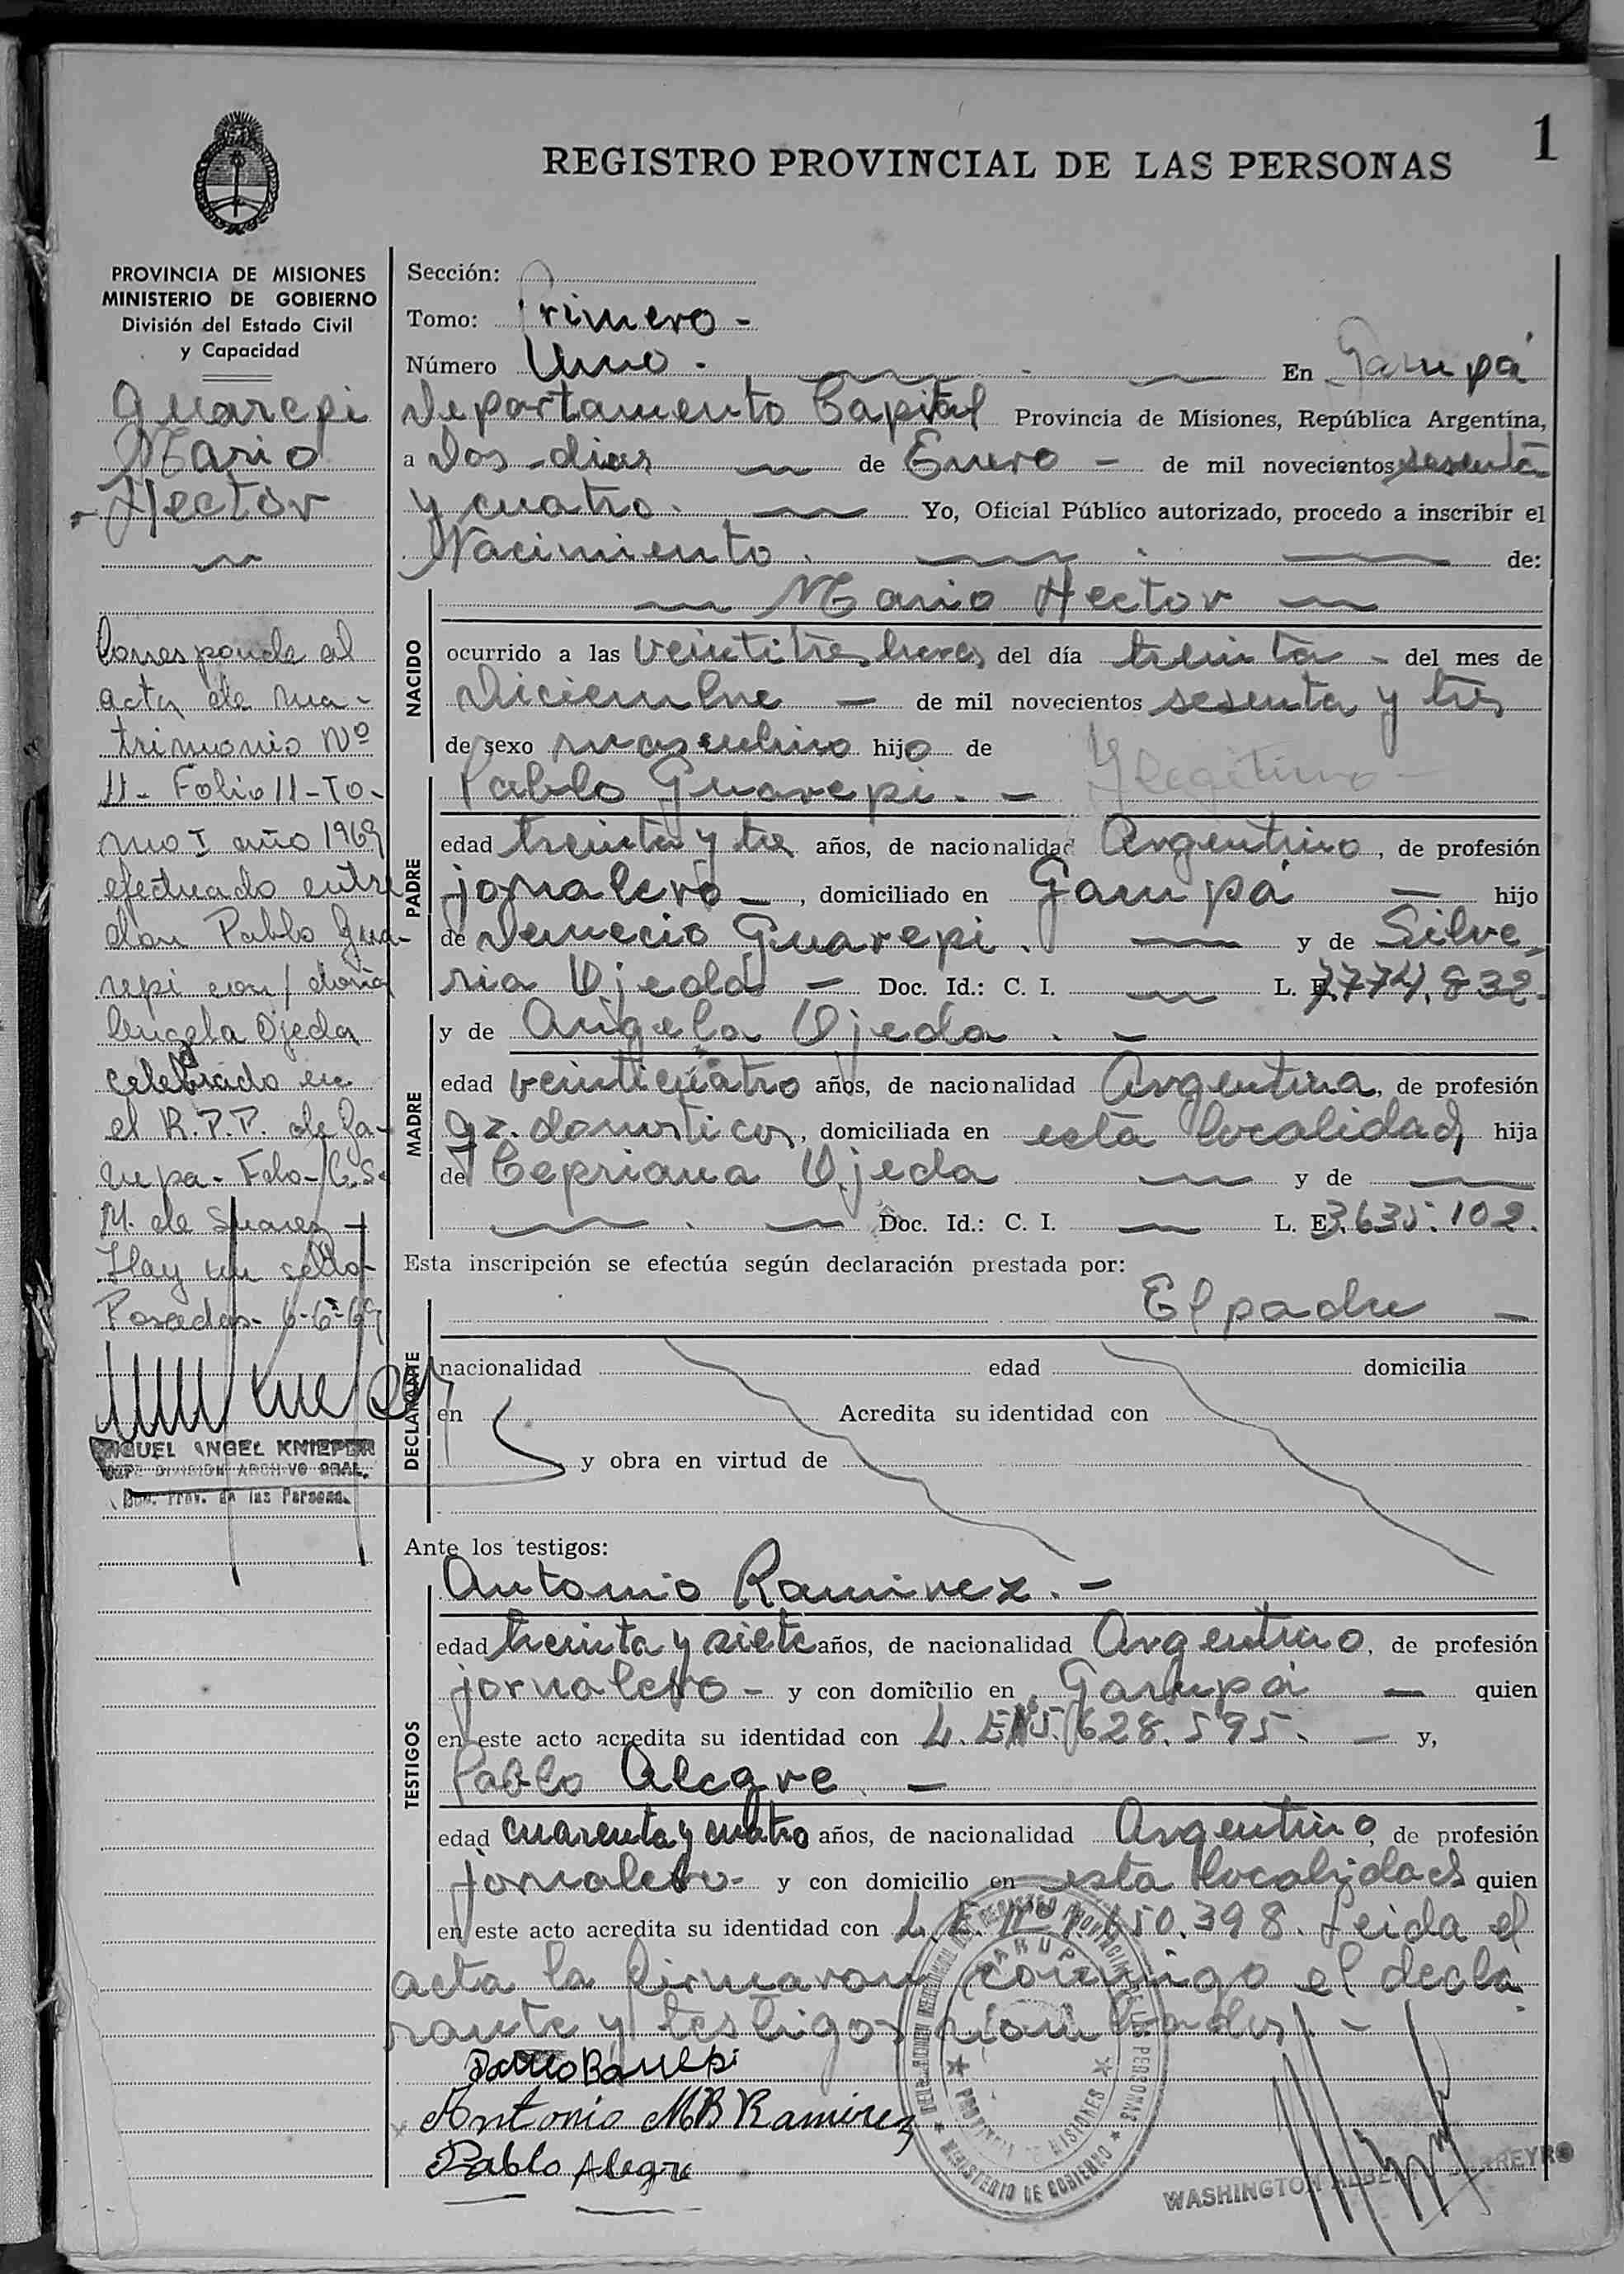 1
REGISTRO PROVINCIAL DE LAS PERSONAS
PROVINCIA DE MISIONES
MINISTERIO DE GOBIERNO
División del Estado Civil
y Capacidad
Guarepi
Mario
Hector
Corresponde al
acta de ma-
trimonio Nº
11- Folio 11-To-
mo I año 1969
efectuado entre
don Pablo Gua-
repi con/ doña
Angela Ojeda
celebrado en
el R.P.P. de Ga-
rupa- Fdo-
M. de Suarez
Hay un sello-
Posadas- 6-6-69
MIGUEL ANGEL KNIEPER
JEFE DIVISION ARCHIVO GRAL.
Prov. de las Personas
Sección:
Tomo: Primero -
Número Uno. En Garupá
Departamento Capital Provincia de Misiones, República Argentina,
a Dos dias de Enero - de mil novecientos sesenta
y cuatro. Yo, Oficial Público autorizado, procedo a inscribir el
Nacimiento. de:
Mario Hector
NACIDO
ocurrido a las veintitres horas del día treinta - del mes de
Diciembre - de mil novecientos sesenta y tres
de sexo masculino hijo de
Ylegitimo -
Pablo Guarepi. -
PADRE
edad treinta y tres años, de nacionalidad Argentino, de profesión
jornalero -, domiciliado en Garupá - hijo
de Demecio Guarepi. y de Silve
ria Ojeda - Doc. Id.: C. I. L. E. 7.774.832.
MADRE
y de Angela Ojeda. -
edad veinticuatro años, de nacionalidad Argentina, de profesión
qz. domesticos, domiciliada en esta localidad, hija
de Cepriana Ojeda y de
Doc. Id.: C. I. L. E. 3.635.102.
Esta inscripción se efectúa según declaración prestada por:
El padre -
DECLARANTE
nacionalidad edad domicilia
en Acredita su identidad con
y obra en virtud de
Ante los testigos:
Antonio Ramirez. -
TESTIGOS
edad treinta y siete años, de nacionalidad Argentino, de profesión
jornalero - y con domicilio en Garupá - quien
en este acto acredita su identidad con L. E. Nº 5.628.595. - y,
Pablo Alegre. -
edad cuarenta y cuatro años, de nacionalidad Argentino, de profesión
jornalero- y con domicilio en esta localidad quien
en este acto acredita su identidad con L. E. Nº 650.398. Leida el
acta la firmaron conmigo el decla
rante y testigos nombrados. -
Antonio MR Ramirez
Pablo Alegre
REGISTRO PROVINCIAL DE LAS PERSONAS
GARUPA
PROVINCIA DE MISIONES
MINISTERIO DE GOBIERNO
WASHINGTON